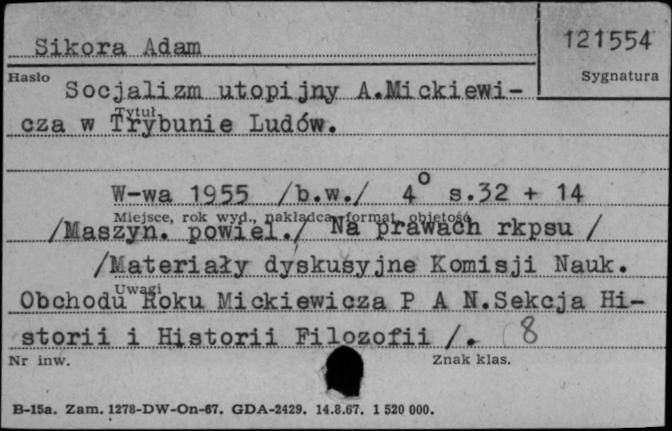 Sikora Adam
121554
Hasło
Sygnatura
Socjalizm utopijny A.Mickiewi-
Tytuł
cza w Trybunie Ludów.
W-wa 1955 /b.w./ 4° s.32 + 14
Miejsce, rok wyd., nakładca, format, objętość
/Maszyn. powiel./ Na prawach rkpsu /
/Materiały dyskusyjne Komisji Nauk.
Uwagi
Obchodu Roku Mickiewicza P A N.Sekcja Hi-
storii i Historii Filozofii /. (8
Nr inw.
Znak klas.
B-15a. Zam. 1278-DW-On-67. GDA-2429. 14.8.67. 1 520 000.